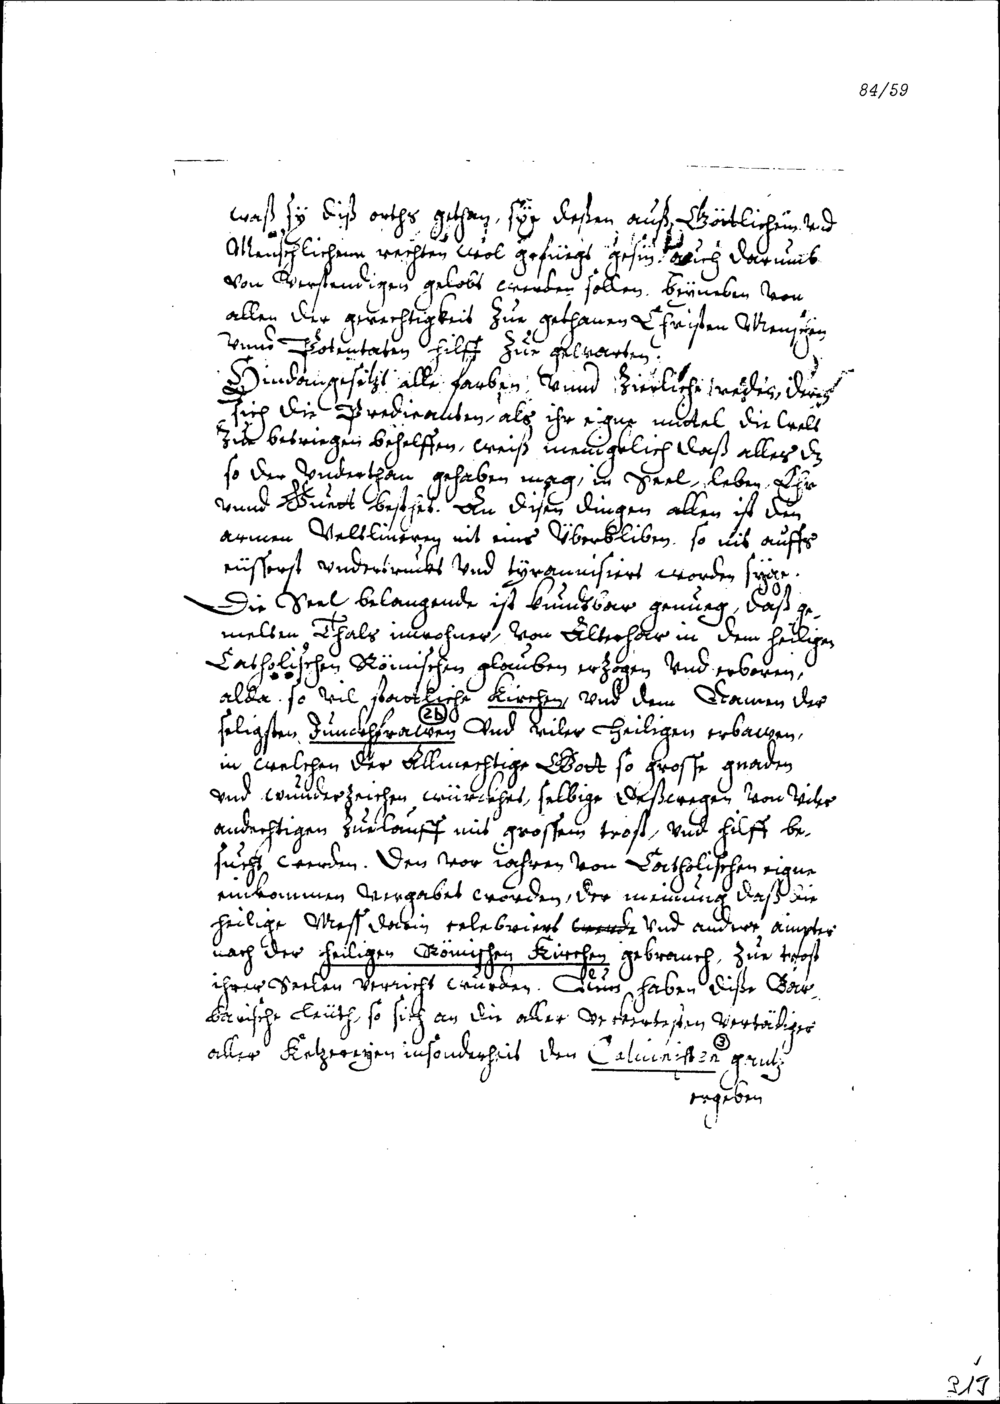 84/59
waß sÿ diß orths gethan, sÿe deßen auß Göttlichem vnd
Menschlichem rechten wol gefüegt gesin. Auch darumb
von Verstendigen gelobt werden sollen. beÿneben von
allen der gerechtigkeit zue gethanen Christen Menschen
vnnd Potentaten hilff zue gewarten.
Hindangesetzt alle farben, vnnd zierliche reden, deren
sich die Predicanten, als ihr eigne mittel die welt
zue betriegen behelffen, weiß menigelich daß alles dz
so der vnderthan gehaben mag, in Seel, leben, Ehr
vnnd Guett bestehet. An disen dingen allen ist den
armen Veltlineren nit eins überbliben, so nit auffs
eüsserst vndertruckt vnd tÿrannisiert worden sÿge.
Die Seel belangende ist kundtbar genueg, daß ge-
melten Thals inwohner, von Alterhar in dem heiligen
Catholischen Römischen glauben erzogen vnd erboren,
alda so vil stattliche Kirchen, vnd dem Namen der
seligsten Junckhfrawen vnd viler Heiligen erbawen,
2b
in welchen der Allmechtige Gott so grosse gnaden
vnd wunderzeichen würckhet, selbige deßwegen von viler
andechtigen zuelauff mit grossem trost, vnd hilff be-
sucht werden. Den vor iahren von Catholischen eigne
einkommen vergabet worden, der meinung daß die
heilige Mess darin celebriert werde vnd andere ämpter
nach der heiligen Römischen Kirchen gebrauch, zue trost
ihrer Seelen verricht wurden. Nun haben dise Bar-
barische leüth, so sich an die aller verkertesten vertädiger
aller Ketzereyen insonderheit den Calvinisten gantz
3
ergeben
319